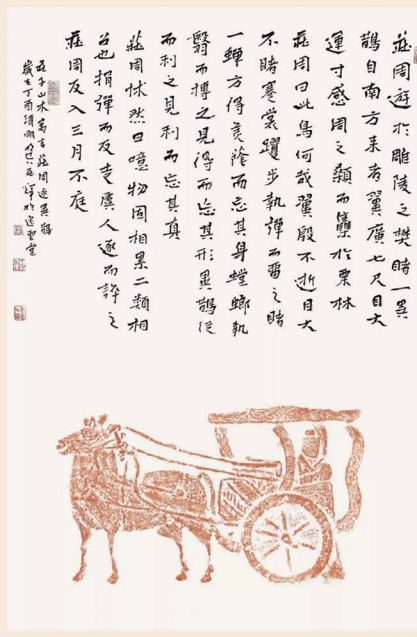 莊周遊於雕陵之樊睹一異
鵲自南方來者翼廣七尺目大
運寸感周之顙而集於栗林
莊周曰此鳥何哉翼殷不逝目大
不睹蹇裳躩步執彈而留之睹
一蟬方得美蔭而忘其身螳螂執
翳而搏之見得而忘其形異鵲從
而利之見利而忘其真
莊周怵然曰噫物固相累二類相
召也捐彈而反走虞人逐而誶之
莊周反入三月不庭
莊子山木寓言莊周異鵲
歲在丁酉清明於堂